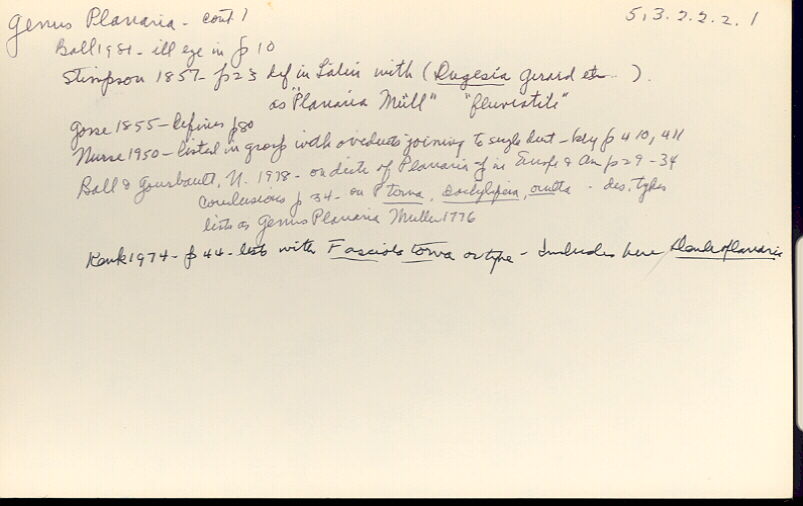 Genus Planaria - cont 1
5.3.2.2.2.1
Ball 1981 - ill eye in p 10
Stimpson 1857 - p 23 def in Latin with (Dugesia Girard etc..).
as "Planaria Müll" "fluviatile"
Gosse 1855 - defines p80
Nurse 1950 - listed in group with oviducts joining to single duct - key p 410, 411
Ball & Gourbault, N. 1978 - on of Planaria in Europe & Am p 29-34
conclusions p 34 - on P torva, dactyligera, occulta - des. types
lists as Genus Planaria Muller 1776
Kenk 1974 - p 44 - lists with Fasciola torva as type - Includes here